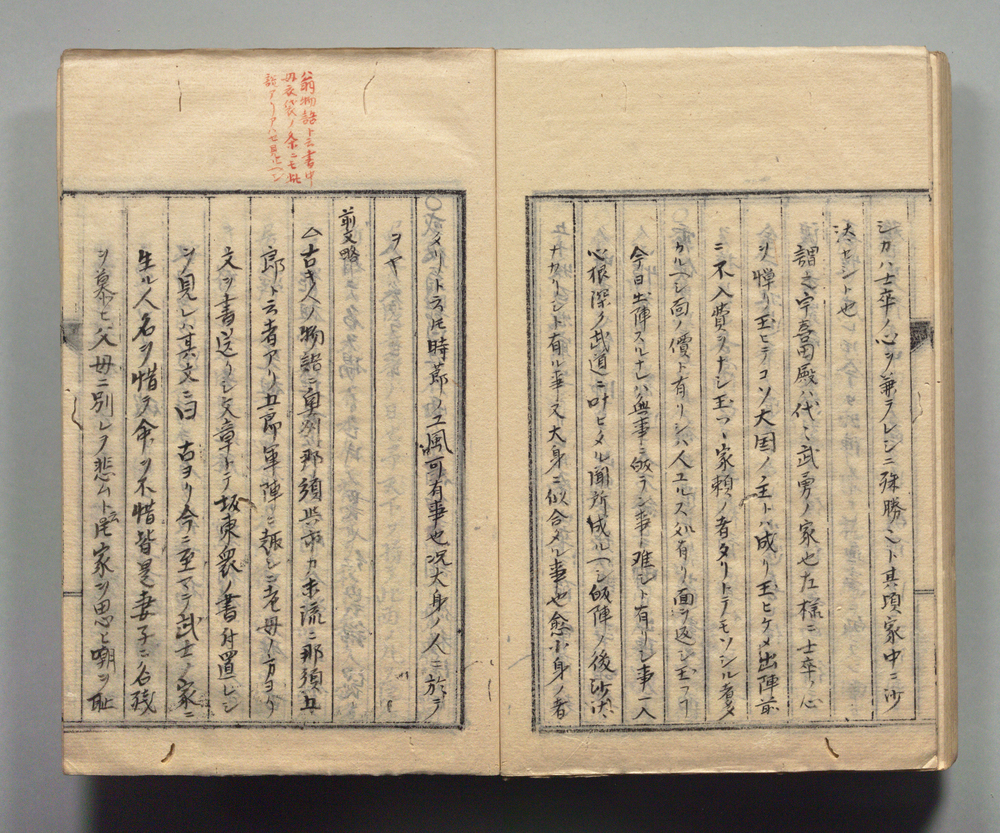 シカハ士卒ノ心ヲ兼テレシニ殊勝ミト其頃家中ニ沙
法セシト也
謂之宇喜田殿ハ代々武勇ノ家也左様ニ士卒ノ心
ヲ憚リ玉ヒテコソ大国ノ主トハ成リ玉ヒケメ出陣前
ニ不入費ヲナシ玉フ家頼ノ者タリトテモソシル者多
クルヘシ面ノ價ト有リシハ人ユルス処有リ面ヲ返シ玉フ
今日出陣スルナレハ無事ニ皈ラン事ハ難シト有リシ事一入
心根深ク武道ニ叶ヒタル聞所成ルヘシ皈陣ノ後沙汰
ナカリシト有ル事又大身ニ似合タル事也愈小身ノ者
タリト云ヒ時節ノ工風可有事也况大身ノ人ニ於テ
ヲヤ
前文略
古キ人ノ物語ニ奥州那須與市カ末流ニ那須五
郎ト云者アリ五郎軍陣ニ趣シニ老母ノ方ヨリ
文ヲ書送リシ文章トテ坂東衆ノ書付置レシ
ヲ見レハ其文ニ曰古ヨリ今ニ至マテ武士ノ家ニ
生ル人名ヲ惜ヲ命ヲ不惜皆是妻子ニ名残
ヲ慕ヒ父母ニ別レヲ悲ムト云ヒ家ヲ思ヒ嘲ヲ恥
翁物語ト云書中
母衣袋ノ条ニモ此
語アリアハセ見ヘシ